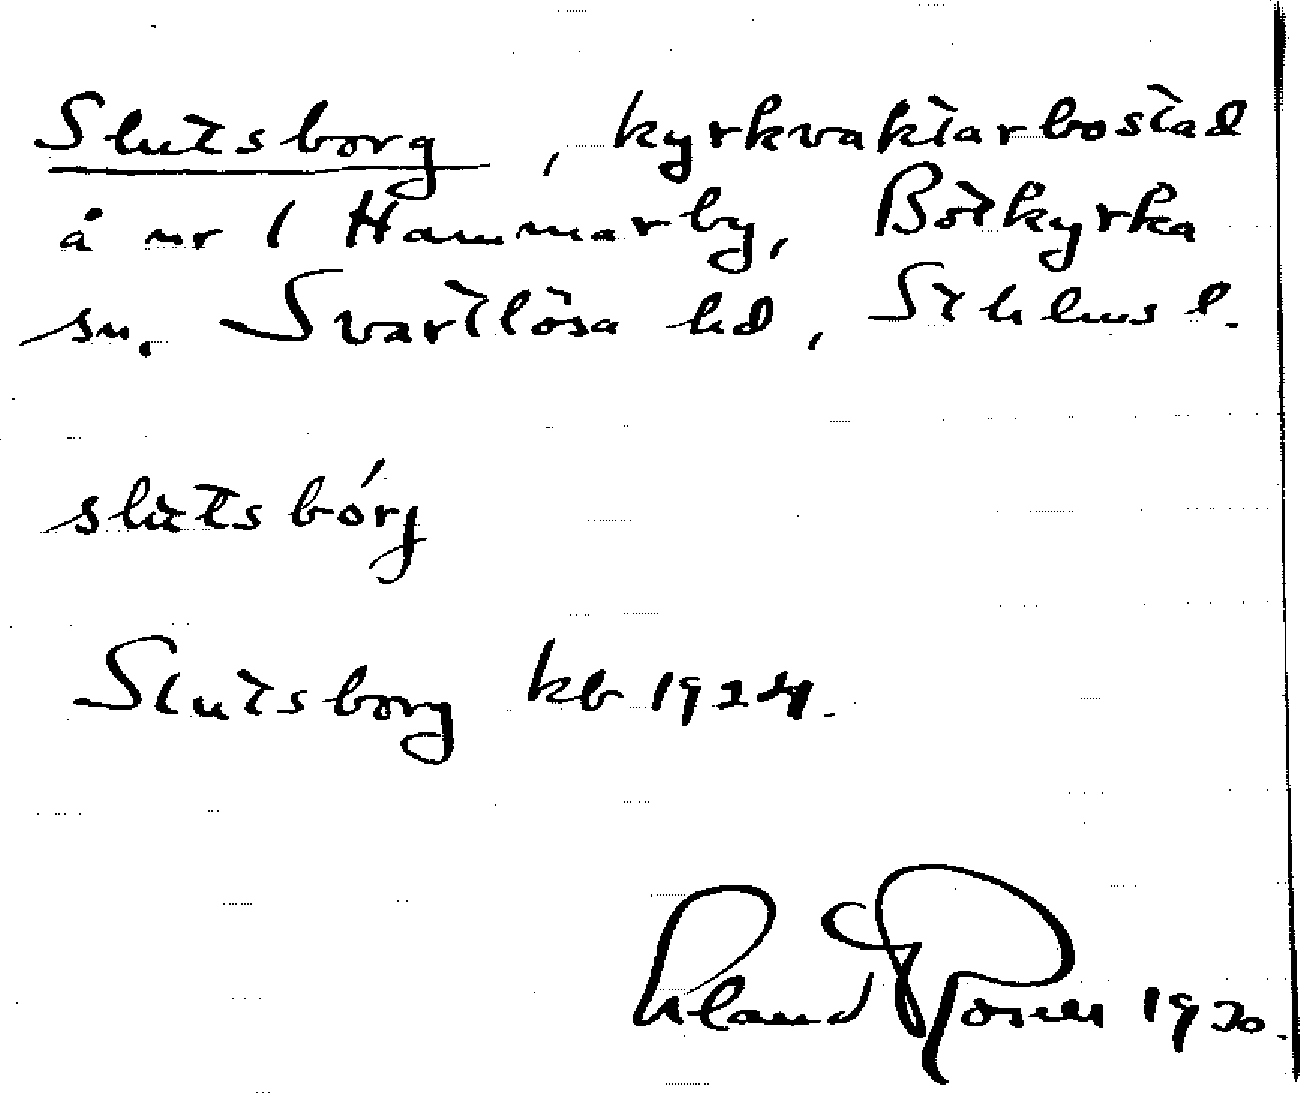 Slutsborg, kyrkvaktarbostad
å nr 1 Hammarby, Botkyrka
sn. Svartlösa hd, Sthlms l.
slùtsbórj
Slutsborg kb 1924.
Erland Rosell 1970.